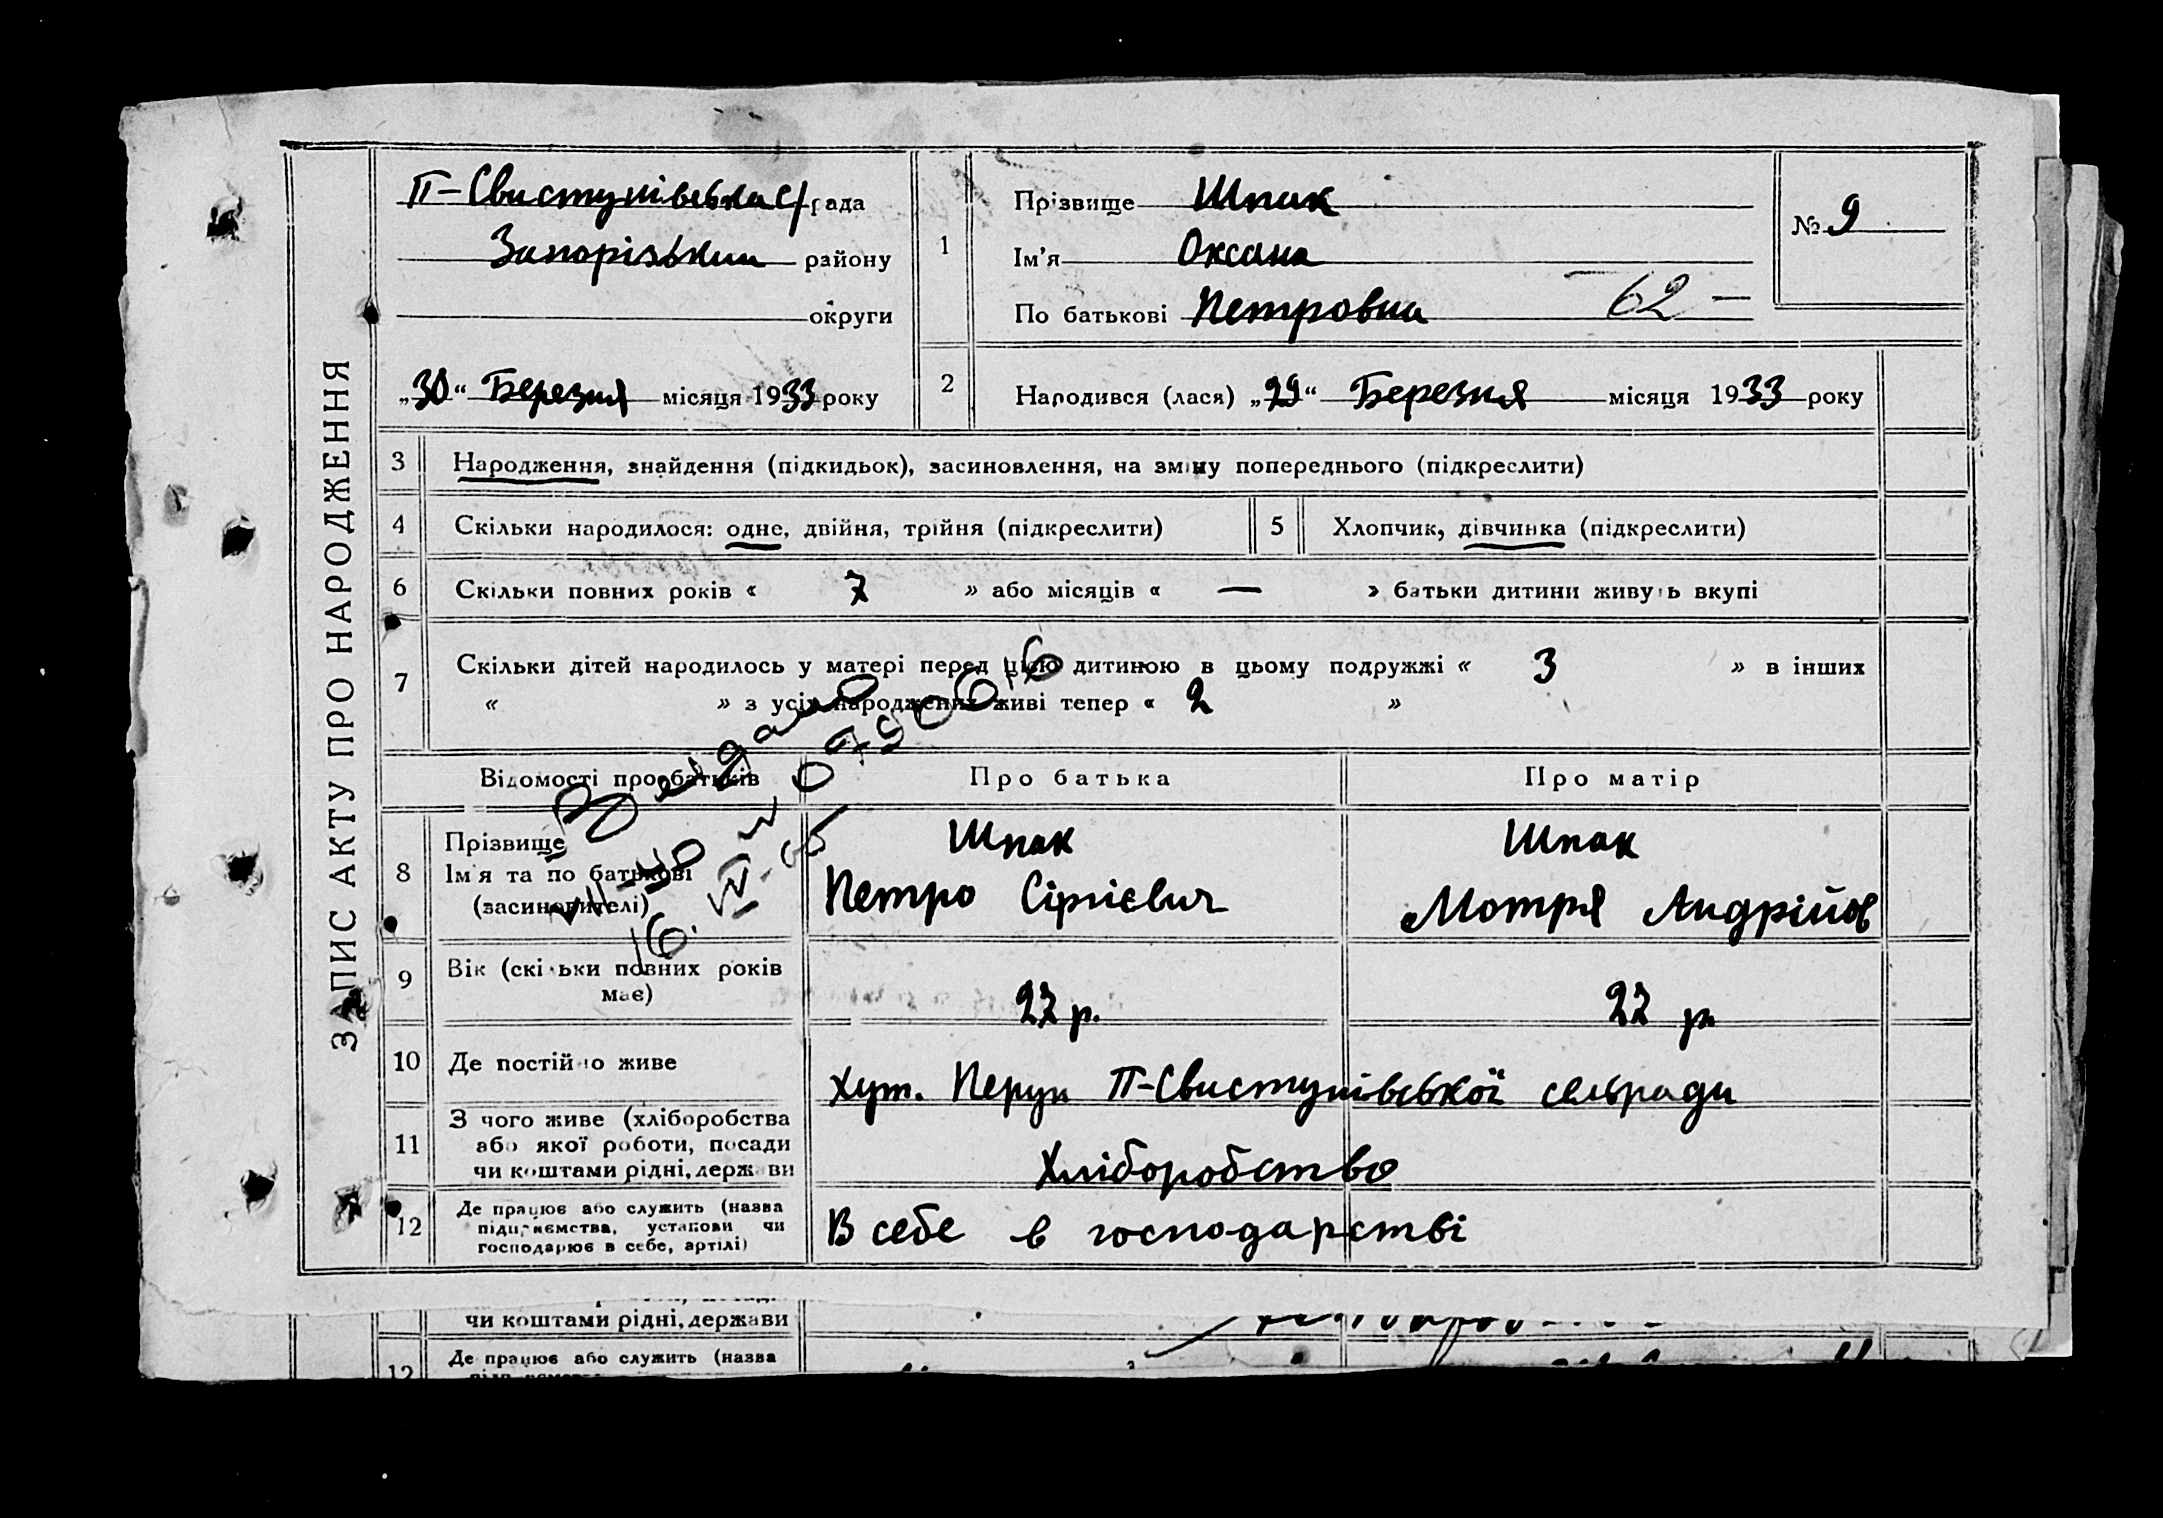 ЗАПИС АКТУ ПРО НАРОДЖЕННЯ
П-Свистунівська с/рада
Запорізький району
округи
„30“ Березня місяця 1933 року
1
Прізвище Шпак
Ім'я Оксана
По батькові Петровна
62 —
№ 9
2
Народився (лася) „29“ Березня місяця 1933 року
3 Народження, знайдення (підкидьок), засиновлення, на зміну попереднього (підкреслити)
4 Скільки народилося: одне, двійня, трійня (підкреслити)
5 Хлопчик, дівчинка (підкреслити)
6 Скільки повних років « 7 » або місяців « — » батьки дитини живуть вкупі
7 Скільки дітей народилось у матері перед цією дитиною в цьому подружжі « 3 » в інших
« » з усіх народжених живі тепер « 2 »
Відомості про батьків
Про батька
Про матір
8 Прізвище
Ім'я та по батькові
(засиновителі)
Шпак
Петро Сіргієвич
Шпак
Мотря Андрійов
9 Вік (скільки повних років
має)
27 р.
27 р.
10 Де постійно живе
Хут. Перун П-Свистунівської сельради
11 З чого живе (хліборобства
або якої роботи, посади
чи коштами рідні, держави
Хліборобство
12 Де працює або служить (назва
підприємства, установи чи
господарює в себе, артілі)
В себе в господарстві
чи коштами рідні, держави
12 Де працює або служить (назва